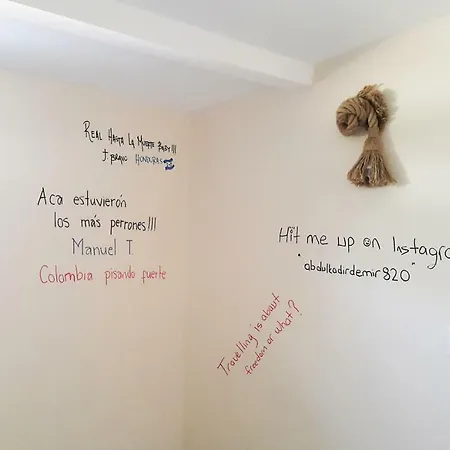 REAL HASTA LA MUERTE BABY!!!
J. BRAVO HONDURAS
Aca estuvieron
los más perrones!!!
Manuel T.
Colombia pisando fuerte
Hit me up on Instagra
"abdulkadirdemir820"
Travelling is about
freedom or what?